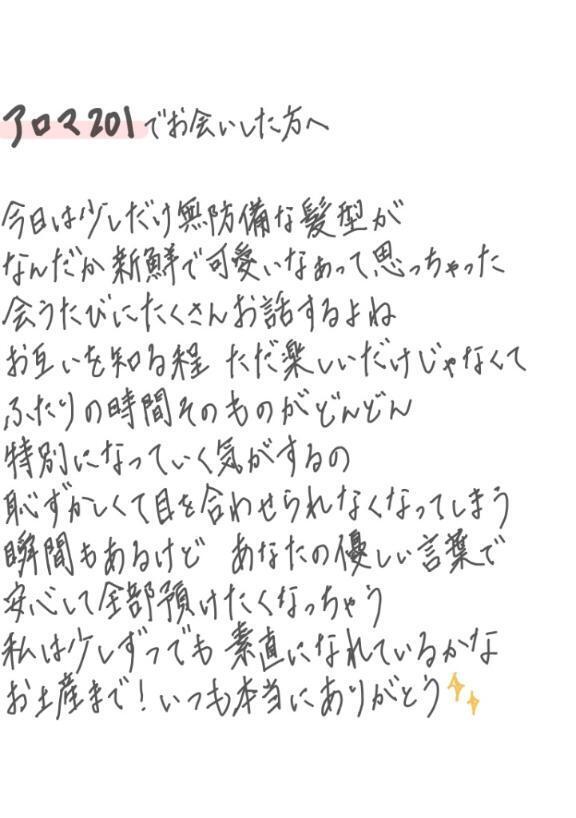 アロマ201でお会いした方へ
今日は少しだけ無防備な髪型が
なんだか新鮮で可愛いなぁって思っちゃった
会うたびにたくさんお話するよね
お互いを知る程 ただ楽しいだけじゃなくて
ふたりの時間そのものがどんどん
特別になっていく気がするの
恥ずかしくて目を合わせられなくなってしまう
瞬間もあるけど あなたの優しい言葉で
安心して全部預けたくなっちゃう
私は少しずつでも素直になれているかな
お土産まで!いつも本当にありがとう✨